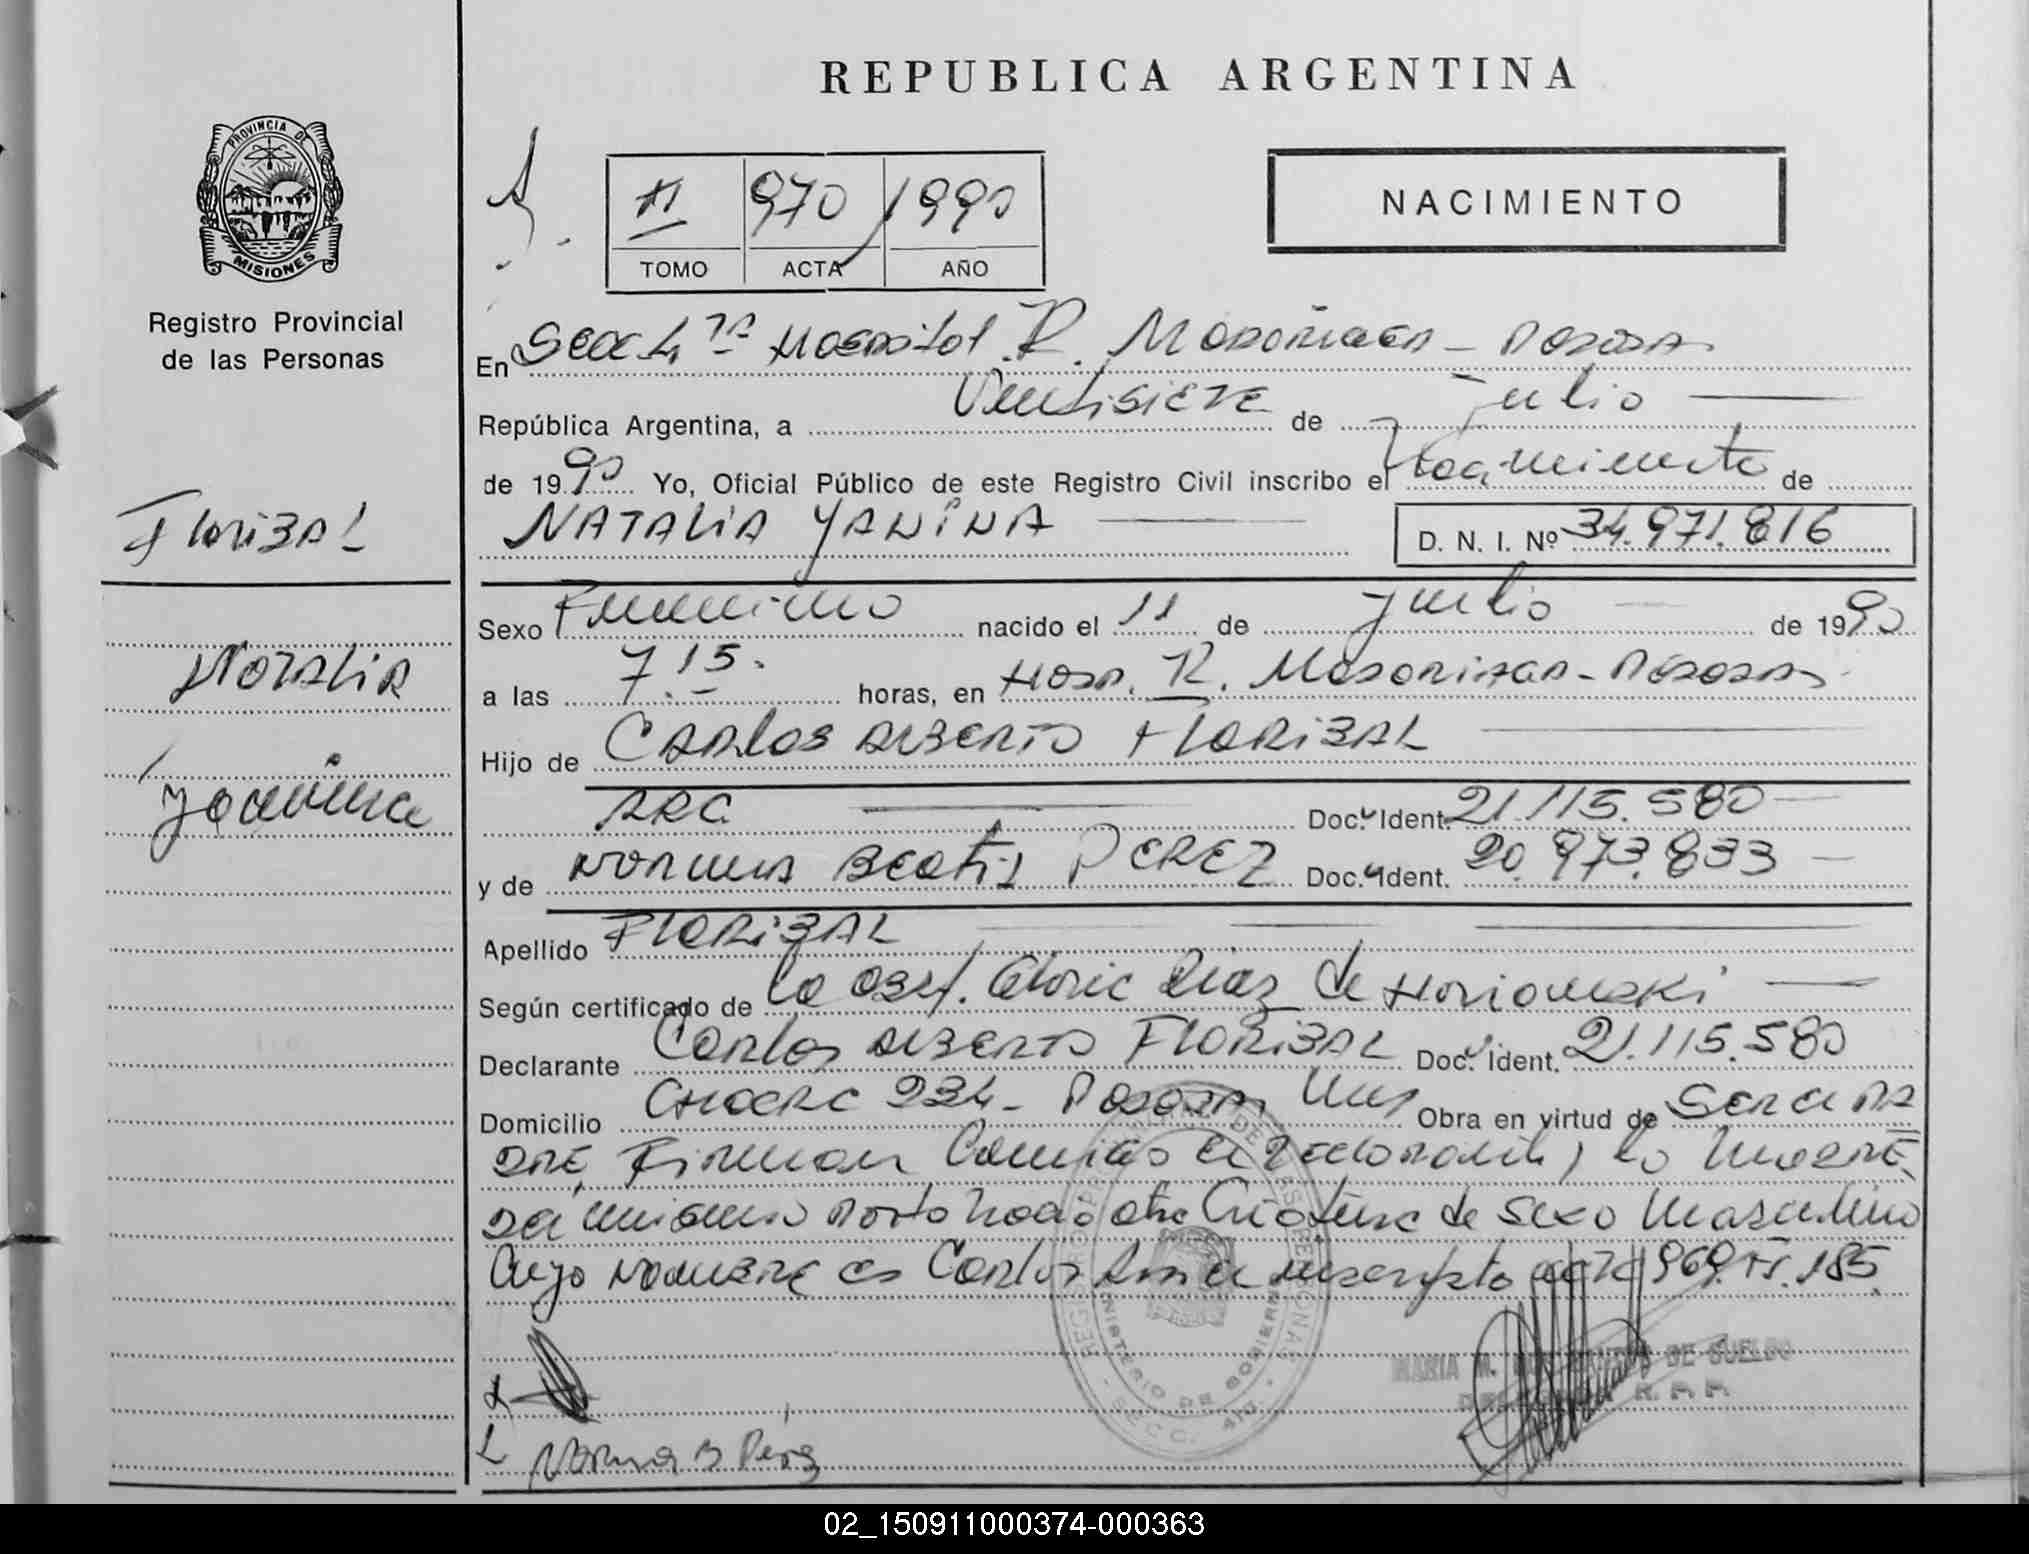 REPUBLICA ARGENTINA
PROVINCIA DE
MISIONES
Registro Provincial
de las Personas
II 970 1990
TOMO ACTA AÑO
NACIMIENTO
En Secc 4ta Hospital R. Madariaga - Posadas
República Argentina, a Veintisiete de Julio
de 1990 Yo, Oficial Público de este Registro Civil inscribo el Nacimiento de
NATALIA YANINA D. N. I. Nº 34.971.816
Florizal
Natalia
Yanina
Sexo Femenino nacido el 11 de Julio de 1990
a las 7.15. horas, en Hosp. R. Madariaga - Posadas
Hijo de Carlos Alberto Florizal
ARG. Doc. Ident. 21.115.580
y de Norma Beatriz PEREZ Doc. Ident. 20.973.833
Apellido FLORIZAL
Según certificado de la Obst. Gloria Diaz de
Declarante Carlos Alberto FLORIZAL Doc. Ident. 21.115.580
Domicilio 234 - Posadas Mnes Obra en virtud de Ser el Pa
dre, Firman Conmigo el Declarante y la Madre.
Del mismo Parto Nació otra Criatura de Sexo Masculino
Cuyo Nombre es Carlos inscripto acta 969. T II. 185.
REGISTRO PROVINCIAL DE LAS PERSONAS
MINISTERIO DE GOBIERNO
SECC. 4ta.
MARIA M. DE SUELDO
R. P. P.
Norma B Pérez
02_150911000374-000363